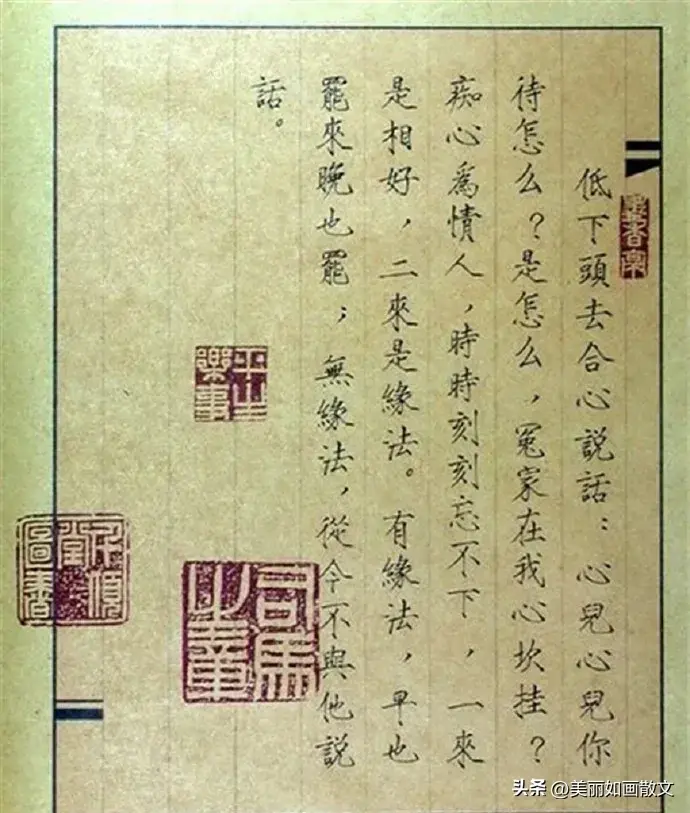 低下頭去合心説話：心兒心兒你
待怎么？是怎么，冤家在我心坎挂？
痴心爲情人，時時刻刻忘不下，一來
是相好，二來是緣法。有緣法，早也
罷來晚也罷；無緣法，從今不與他説
話。
平生
樂事
頭条 @美丽如画散文